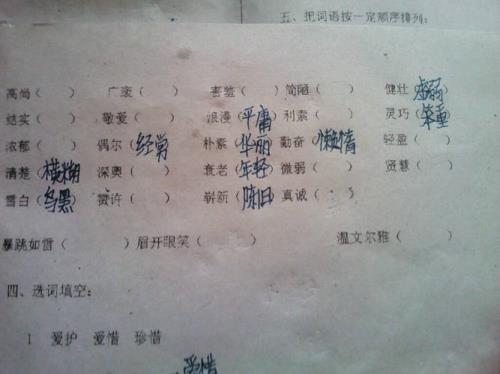 五、把词语按一定顺序排列：
高尚（ ） 广袤（ ） 害羞（ ） 简陋（ ） 健壮（虚弱）
结实（ ） 敬爱（ ） 浪漫（平庸） 利索（ ） 灵巧（笨重）
浓郁（ ） 偶尔（经常） 朴素（华丽） 勤奋（懒惰） 轻盈（ ）
清楚（模糊） 深奥（ ） 衰老（年轻） 微弱（ ） 贤慧（ ）
雪白（乌黑） 赞许（ ） 崭新（陈旧） 真诚（ ）
暴跳如雷（ ） 眉开眼笑（ ） 温文尔雅（ ）
四、选词填空：
1 爱护 爱惜 珍惜
爱惜